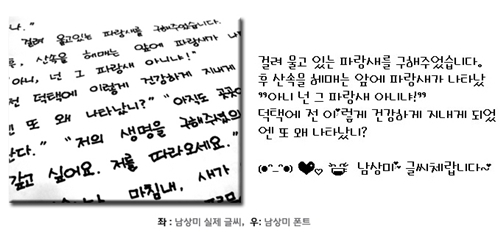 나."
걸려 울고있는 파랑새를 구해주었습니다.
후, 산속을 헤매는 앞에 파랑새가 나타
"아니, 넌 그 파랑새 아니냐!"
전 덕택에 이렇게 건강하게 지내게
또 왜 나타났니?" "아직도 꽁꽁
한다." "저의 생명을 구해주셨으
갚고 싶어요. 저를 따라오세요."
마침내, 새가
걸려 울고 있는 파랑새를 구해주었습니다.
후 산속을 헤매는 앞에 파랑새가 나타났
"아니 넌 그 파랑새 아니냐!"
덕택에 전 이렇게 건강하게 지내게 되었
엔 또 왜 나타났니?
(●^_^●) ♥♡ 남상미 글씨체랍니다~
좌 : 남상미 실제 글씨, 우: 남상미 폰트